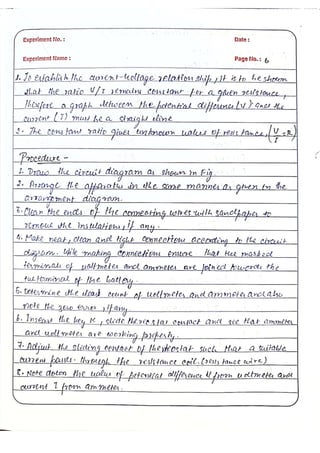 Experiment No. :
Date :
Experiment Name :
Page No. : 6
1. To establish the current-voltage relationship, it is to be shown
that the ratio V/I remains constant for a given resistance,
therefore a graph between the potential difference (V) and the
current (I) must be a straight line
2. The constant ratio gives unknown values of resistance, (V/I = R)
Procedure -
1. Draw the circuit diagram as shown in fig.
2. Arrange the apparatus in the same manner as given in the
arrangement diagram.
3. Clean the ends of the connecting wires with sandpaper to
remove the insulations, if any.
4. Make neat, clean and tight connections according to the circuit
diagram. While making connections ensure that the marked
terminals of voltmeter and ammeter are joined towards the
terminal of the battery.
5. Determine the least count of voltmeter and ammeter and also
note the zero error if any.
6. Insert the key K, slide the rheostat contact and see that ammeter
and voltmeter are working properly.
7. Adjust the sliding contact of rheostat such that a suitable
current passes through the resistance coil. (resistance wire)
8. Note down the value of potential difference V from voltmeter and
current I from ammeter.